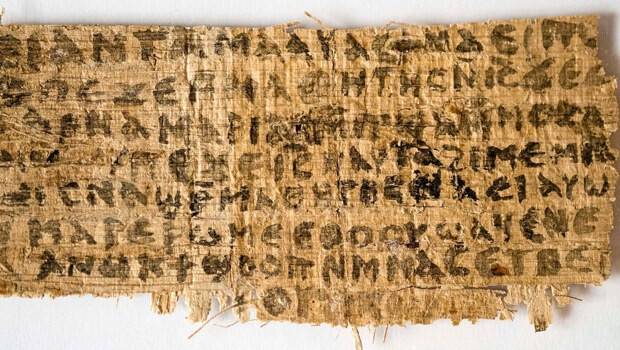 ⲛⲁⲉⲓ ⲁⲛ ⲧⲁⲙⲁⲁⲩ ⲁⲥϯ ⲛⲁⲉⲓ ⲡⲱ
ⲡⲉϫⲉ ⲙⲙⲁⲑⲏⲧⲏⲥ ⲛⲓ̅ⲥ̅ ϫⲉ ⲥ
ⲁⲣⲛⲁ ⲙⲁⲣⲓⲁⲙ ⲙⲡϣⲁ ⲙⲙⲟⲥ ⲁ
ⲡⲉϫⲉ ⲓ̅ⲥ̅ ⲛⲁⲩ ⲧⲁϩⲓⲙⲉ ⲙⲛ
ⲥⲛⲁϣⲣⲙⲁⲑⲏⲧⲏⲥ ⲛⲁⲉⲓ ⲁⲩⲱ
ⲙⲁⲣⲉⲣⲱⲙⲉ ⲉⲑⲟⲟⲩ ϣⲁϥⲉ ⲛⲉ
ⲁⲛⲟⲕ ϯϣⲟⲟⲡ ⲛⲙⲙⲁⲥ ⲉⲧⲃⲉ